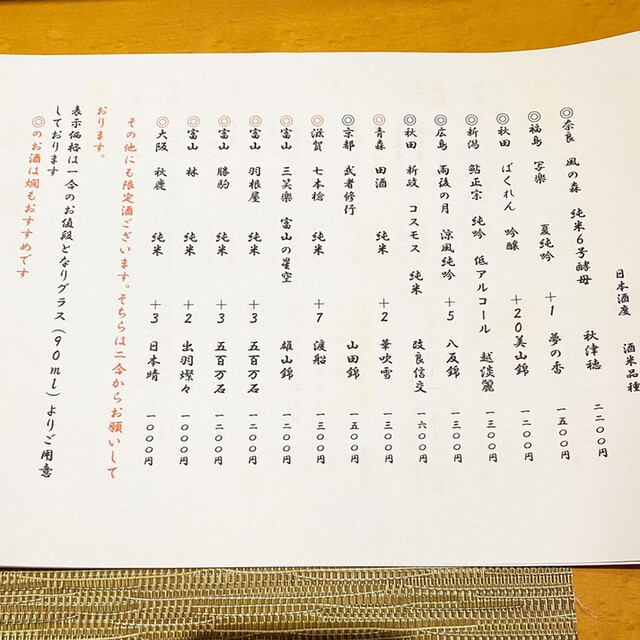 日本酒度　酒米品種
◎奈良　風の森　純米6号酵母　秋津穂　二二〇〇円
◎福島　写楽　夏純吟　＋1　夢の香　一五〇〇円
◎秋田　ばくれん　吟醸　＋20美山錦　一二〇〇円
◎新潟　鮎正宗　純吟　低アルコール　越淡麗　一三〇〇円
◎広島　雨後の月　涼風純吟　＋5　八反錦　一三〇〇円
◎秋田　新政　コスモス　純米　改良信交　一六〇〇円
◎青森　田酒　純米　＋2　華吹雪　一三〇〇円
◎京都　武者修行　山田錦　一五〇〇円
◎滋賀　七本槍　純米　＋7　渡船　一三〇〇円
◎富山　三笑楽　富山の星空　雄山錦　一二〇〇円
◎富山　羽根屋　純米　＋3　五百万石　一二〇〇円
◎富山　勝駒　純米　＋3　五百万石　一二〇〇円
◎富山　林　純米　＋2　出羽燦々　一〇〇〇円
◎大阪　秋鹿　純米　＋3　日本晴　一〇〇〇円
その他にも限定酒ございます。そちらは二合からお願いして
おります。
表示価格は一合のお値段となりグラス(90ml)よりご用意
しております
◎のお酒は燗もおすすめです